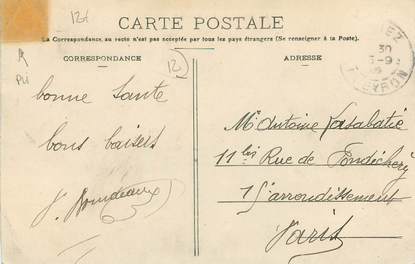 12d
CARTE POSTALE
La Correspondance, au recto n'est pas acceptée par tous les pays étrangers (Se renseigner à la Poste).
CORRESPONDANCE
ADRESSE
12
bonne Santé
bons baisers
Mr Antoine
11 bis Rue de Pondichéry
15 arrondissement
Paris
EZ
30
AVEYRON